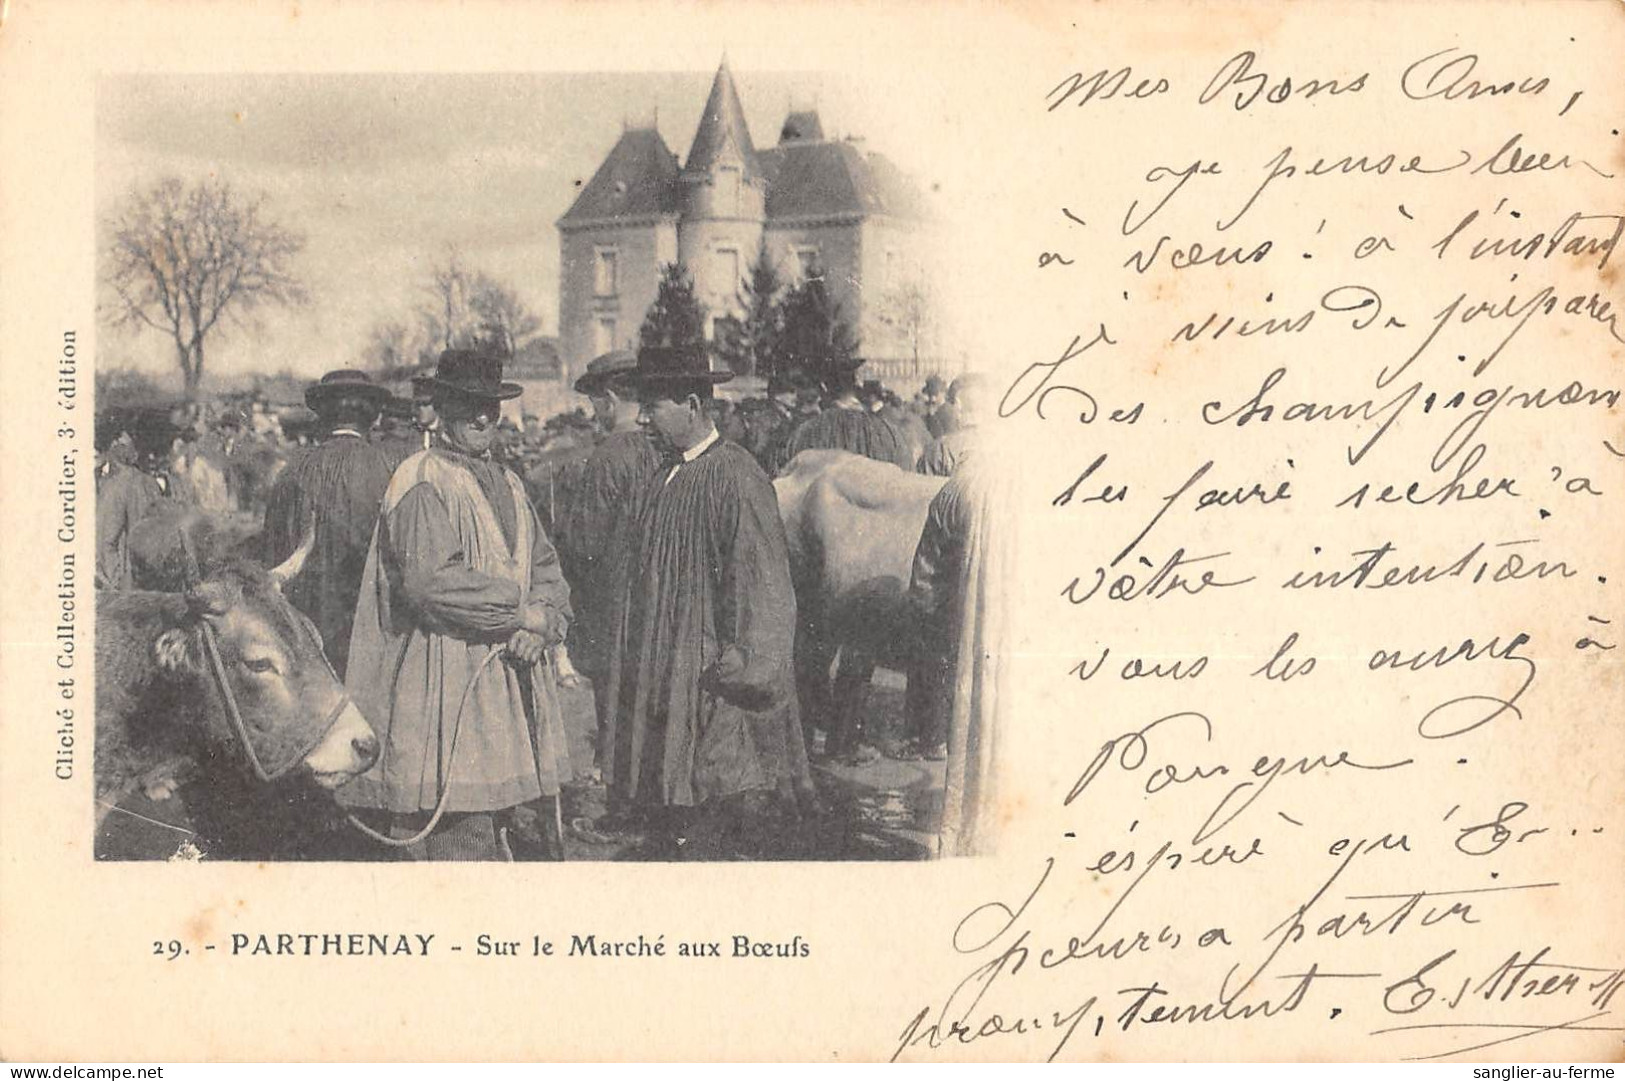 Mes Bons Amis,
Je pense bien
à vous ! à l'instant
je viens de préparer
des champignons
les faire sécher à
vôtre intention.
vous les aurez à
Pouzque.
j'éspère qu'E...
pourra partir
promptement. Esther M
Cliché et Collection Cordier, 3e édition
29. - PARTHENAY - Sur le Marché aux Bœufs
sanglier-au-ferme